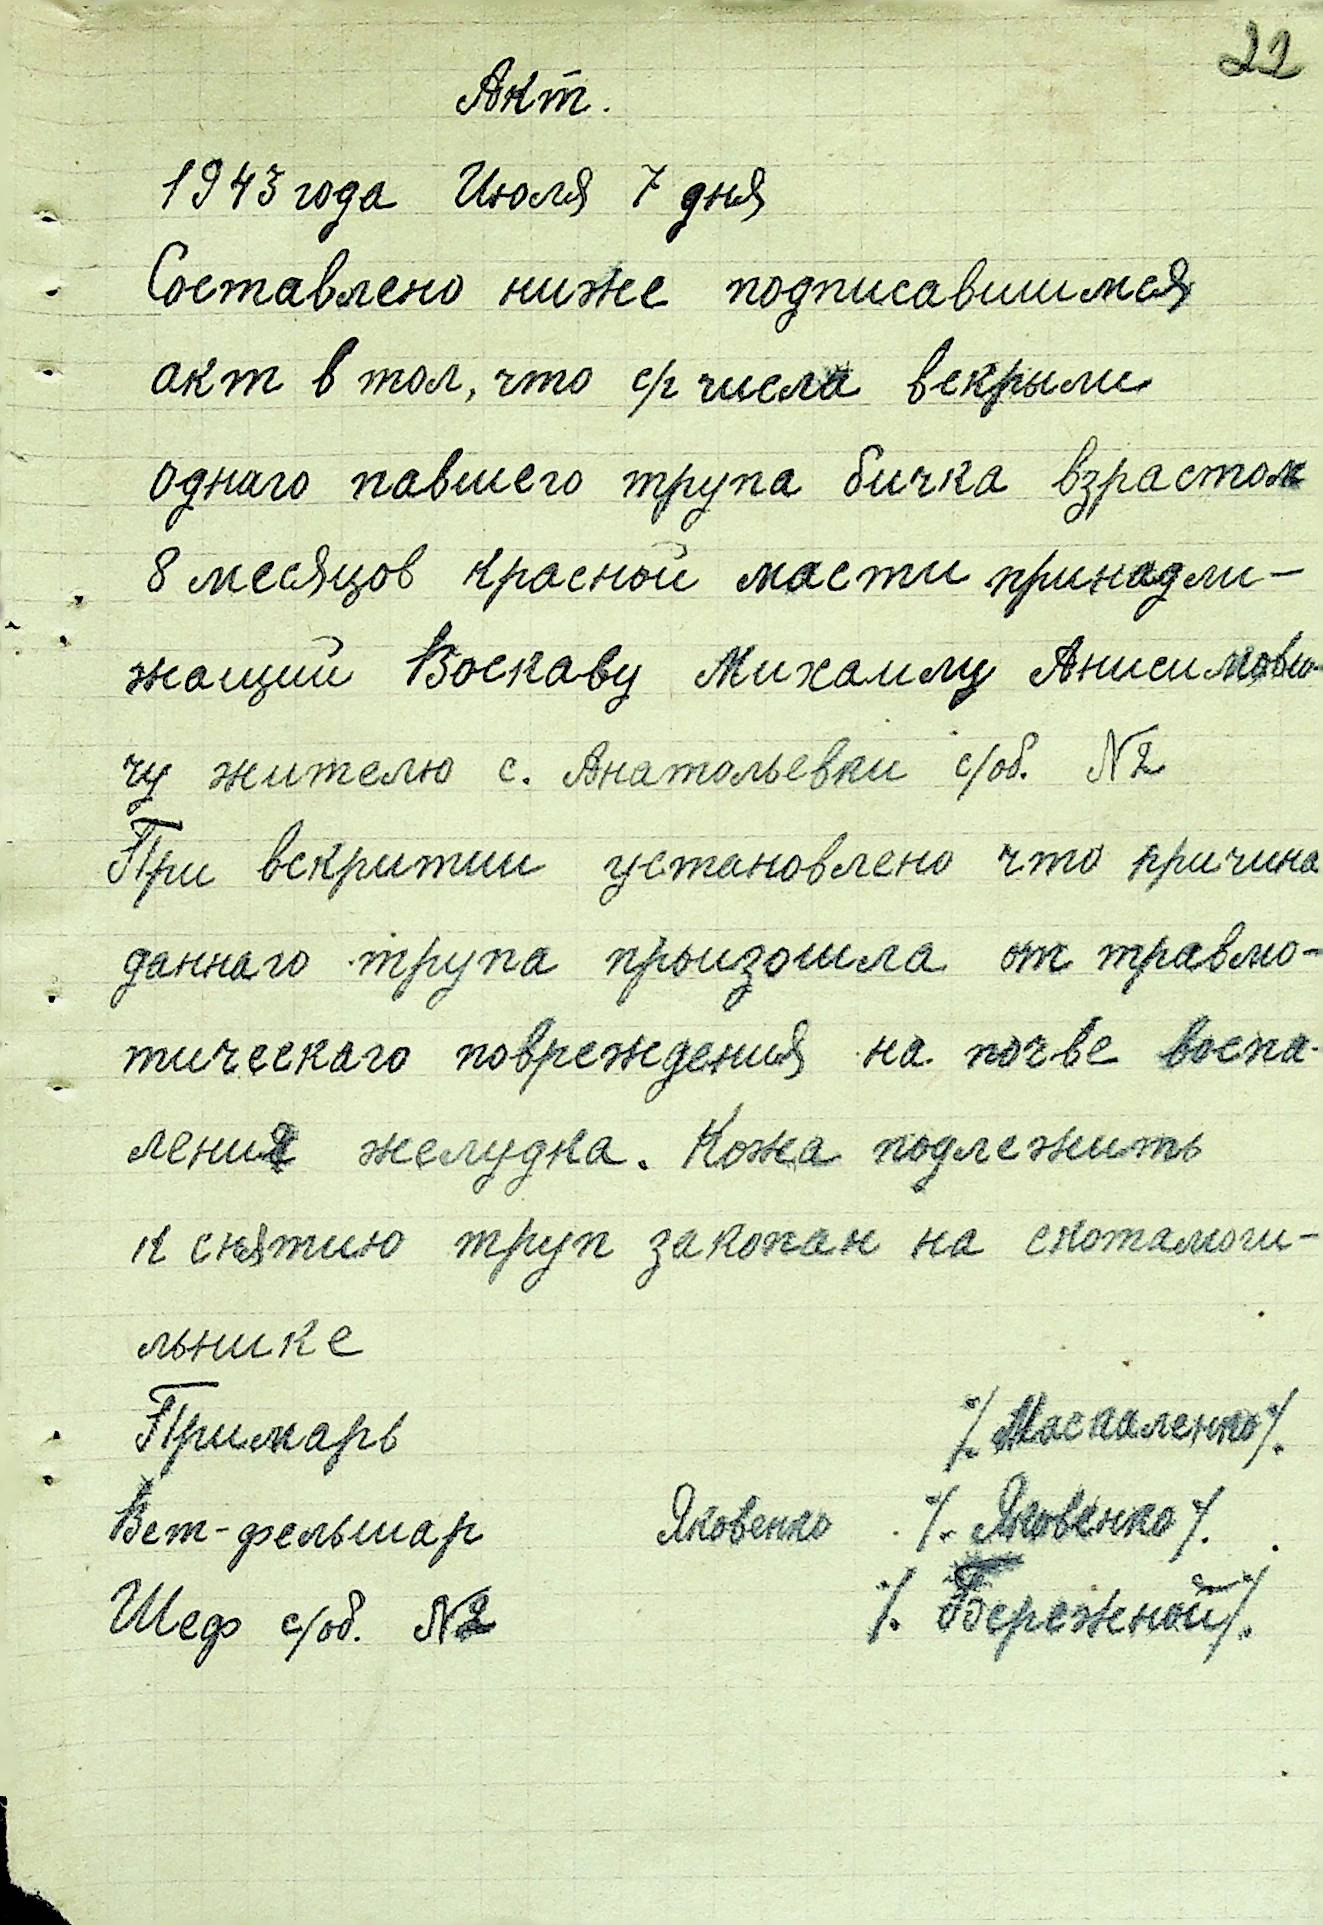 22
Акт.
1943 года Июля 7 дня
Составлено ниже подписавшимся
акт в том, что с/г числа вскрыли
однаго павшего трупа бичка взрастом
8 месяцов красной масти принадли-
жащий Воскаву Михаилу Анисимови-
чу жителю с. Анатольевки с/об. N2
При вскритии установлено что причина
даннаго трупа произошла от травмо-
тическаго повреждения на почве воспа-
ления желудка. Кожа подлежить
к снятию труп закопан на скотамоги-
льнике
Примарь /. Маскаленко /.
Вет-фельшар Яковенко /. Яковенко /.
Шеф с/об. N2 /. Бережной /.